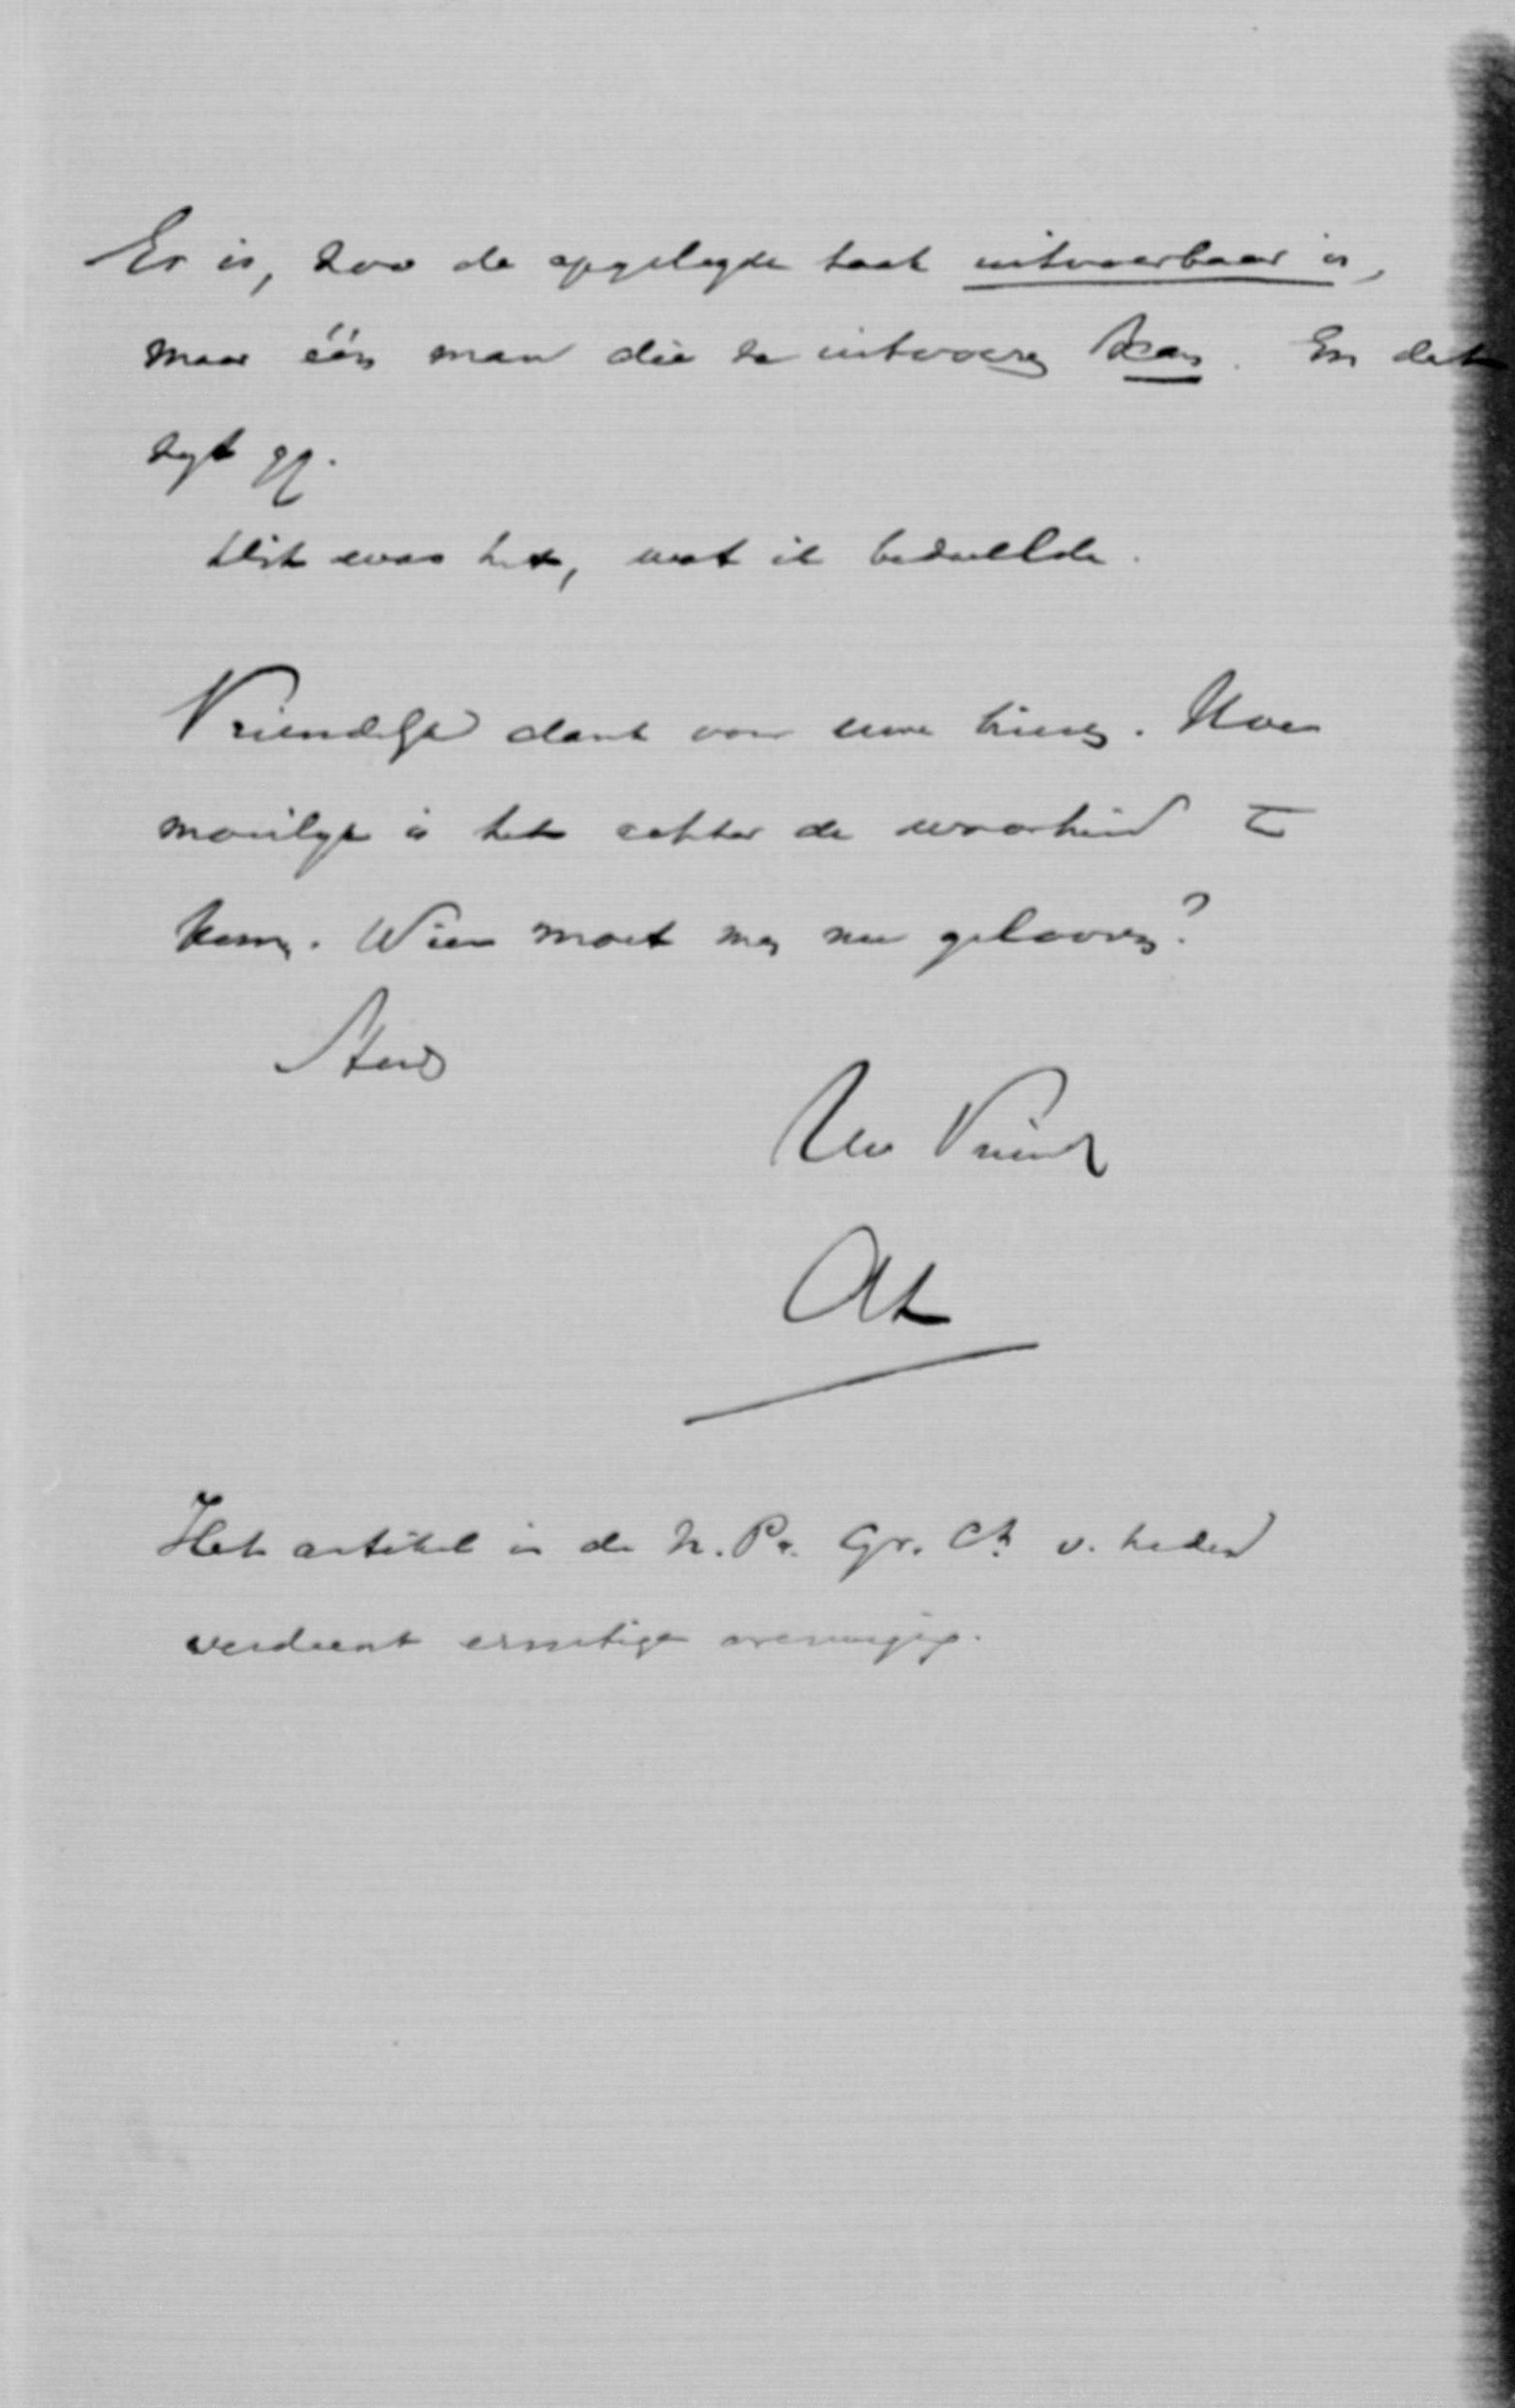 Er is, zoo de opgelegde taak uitvoerbaar is,
maar één man die ze uitvoeren kan. En dat
zijt gij.
Dit was het, wat ik bedoelde.
Vriendelijk dank voor uwe brieven. Hoe
moeilijk is het achter de waarheid te
komen. Wien moet men nu gelooven?
Steeds
Uw Vriend
Het artikel in de N. Pr. Gr. Ct v. heden
verdient ernstige overweging.